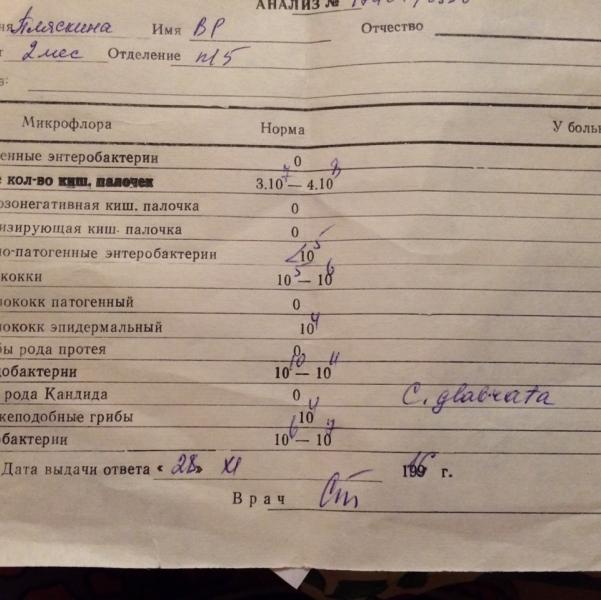 АНАЛИЗ №
Пляскина Имя ВР Отчество
2 мес Отделение п/5
Микрофлора Норма У боль
енные энтеробактерии 0
кол-во киш. палочек 3.10⁷ — 4.10⁸
озонегативная киш. палочка 0
изирующая киш. палочка 0
но-патогенные энтеробактерии <10⁵
кокки 10⁵ — 10⁶
окок патогенный 0
лококк эпидермальный 10⁴
бы рода протея 0
добактерии 10¹⁰ — 10¹¹
рода Кандида 0 C. glabrata
жеподобные грибы 10⁴
обактерии 10⁶ — 10⁷
Дата выдачи ответа « 28 » XI г.
Врач